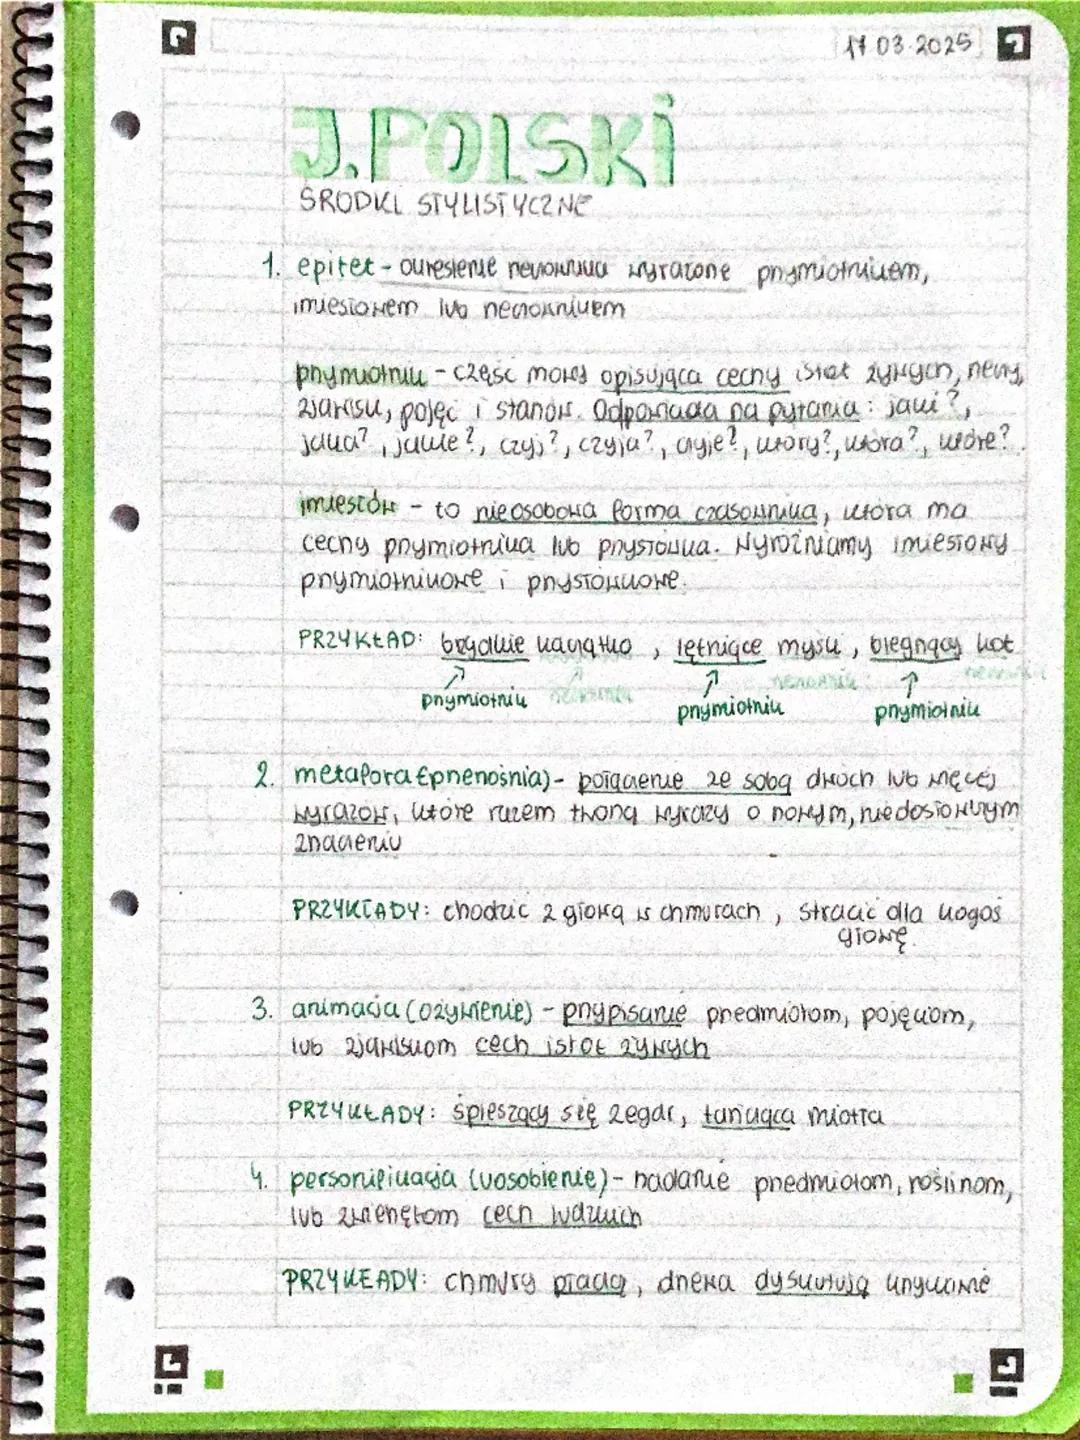 17.03.2025
J. POLSKI
ŚRODKI STYLISTYCZNE
1. epitet - określenie rzeczownika wyrażone przymiotnikiem,
imiesłowem lub rzeczownikiem
przymiotnik - część mowy opisująca cechy istot żywych, rzeczy,
zjawisk, pojęć i stanów. Odpowiada na pytania: jaki?,
jaka?, jakie?, czyj?, czyja?, czyje?, który?, która?, które?.
imiesłów - to nieosobowa forma czasownika, która ma
cechy przymiotnika lub przysłówka. Wyróżniamy imiesłowy
przymiotnikowe i przysłówkowe.
PRZYKŁAD: brzydkie kaczątko, tętniące myśli, biegnący kot
rzeczownik rzeczownik rzeczownik
przymiotnik przymiotnik przymiotnik
2. metafora (przenośnia) - połączenie ze sobą dwóch lub więcej
wyrazów, które razem tworzą wyrazy o nowym, niedosłownym
znaczeniu
PRZYKŁADY: chodzić z głową w chmurach, stracić dla kogoś
głowę.
3. animacja (ożywienie) - przypisanie przedmiotom, pojęciom,
lub zjawiskom cech istot żywych
PRZYKŁADY: śpieszący się zegar, tańcząca miotła
4. personifikacja (uosobienie) - nadanie przedmiotom, roślinom,
lub zwierzętom cech ludzkich
PRZYKŁADY: chmury płaczą, drzewa dyskutują